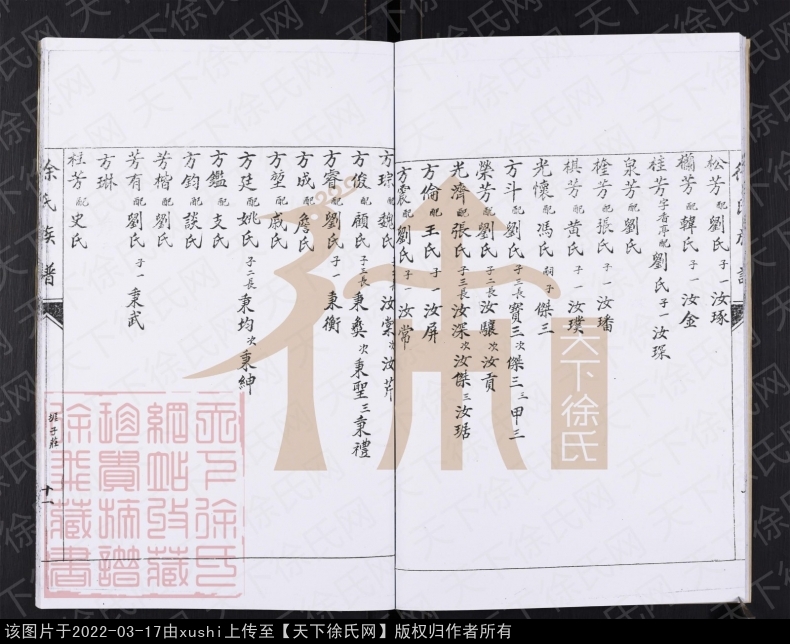 松芳配劉氏子一汝琢
欄芳配韓氏子一汝金
桂芳字香亭配劉氏子一汝琛
泉芳配劉氏
楏芳配張氏子一汝璠
棋芳配黄氏子一汝璞
光懷配馮氏嗣子傑三
方斗配劉氏子三長贊三次傑三三甲三
榮芳配劉氏子二長汝驤次汝貢
光濟配張氏子三長汝深次汝傑三汝琚
方倫配王氏子一汝屏
方震配劉氏子一汝常
方琮配魏氏子二長汝棠次汝芹
方俊配顧氏子三長秉彝次秉聖三秉禮
方睿配劉氏子一秉衡
方成配詹氏
方堃配戚氏
方廷配姚氏子二長秉均次秉紳
方鑑配支氏
方鈞配談氏
芳楷配劉氏
芳有配劉氏子一秉武
方琳
桂芳配史氏
徐氏族譜
垢子莊
十一
天下徐氏
天下徐氏網站收藏珍貴族譜徐飛藏書
天下徐氏网
该图片于2022-03-17由xushi上传至【天下徐氏网】版权归作者所有